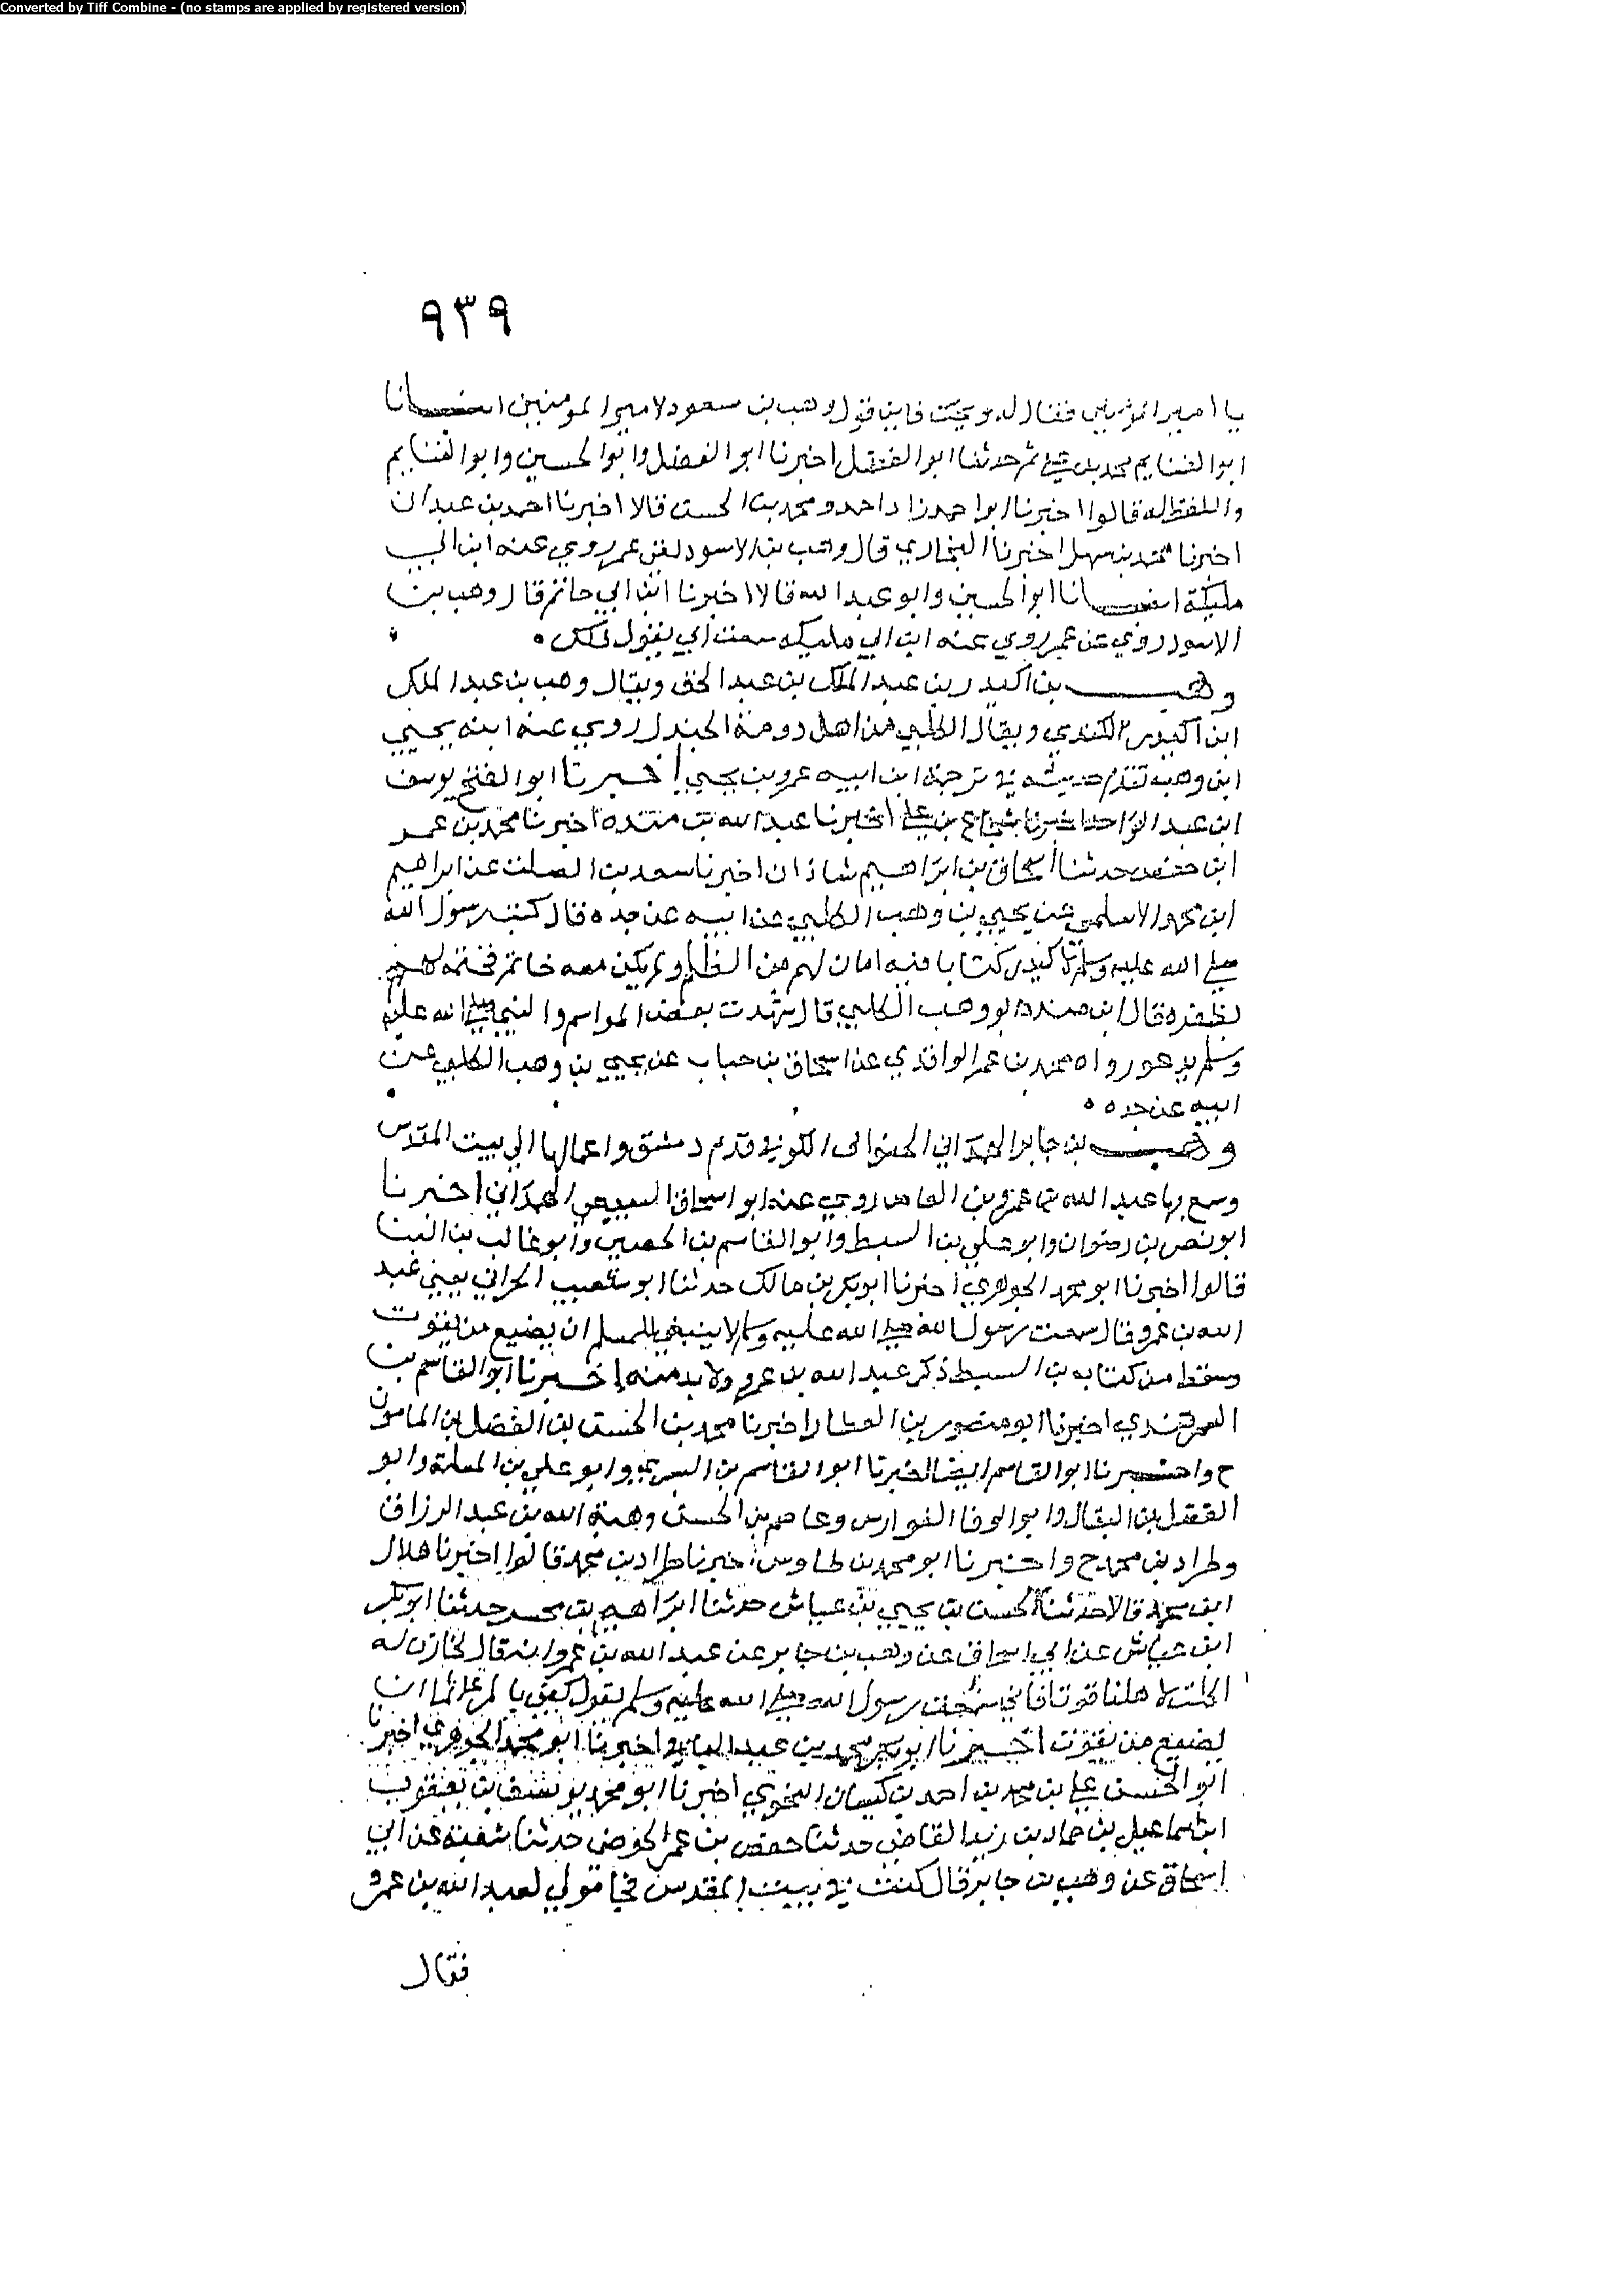 Converted by Tiff Combine - (no stamps are applied by registered version)
٩٣٩
يا امير المؤمنين فقال له ويحك فاين قول وهب بن مسعود لامير المومنين انبـانا
ابو الغنايم محمد بن علي ثم حدثنا ابو الفضل اخبرنا ابو الفضل وابو الحسين وابو الغنايم
واللفظ له قالوا اخبرنا ابو احمد زاد احمد ومحمد بن الحسن قالا اخبرنا احمد بن عبدان
اخبرنا محمد بن سهل اخبرنا البخاري قال وهب بن الاسود لقي عمر روي عنه ابن ابي
مليكة انبـانا ابو الحسين وابو عبد الله قالا اخبرنا ابن ابي حاتم قال وهب بن
الاسود روي عن عمر روي عنه ابن ابي مليكه سمعت ابي يقول ذلك ه
وهـب بن اكيدر بن عبد الملك بن عبد الحق ويقال وهب بن عبد الملك
ابن اكيدر الكندي ويقال الكلبي من اهل دومة الجندل روي عنه ابنه يحيي
ابن وهب تقدم حديثه في ترجمة ابن ابيه عمرو بن يحيي اخبرنا ابو الفتح يوسف
ابن عبد الواحد اخبرنا شجاع بن علي اخبرنا عبد الله بن منده اخبرنا محمد بن عمر
ابن حفص حدثنا اسحاق بن ابراهيم شاذان اخبرنا سعد بن الصلت عن ابراهيم
ابن محمد الاسلمي عن يحيي بن وهب الكلبي عن ابيه عن جده قال كتب رسول الله
صلى الله عليه وسلم لاكيدر كتابا فيه امان لهم من الظلم ولم يكن معه خاتم فختمه لهم
بظفره قال ابن منده ابو وهب الكلبي قال شهدت بعض المواسم والنبي صلى الله عليه
وسلم يدعو رواه محمد بن عمر الواقدي عن اسحاق بن حباب عن يحيي بن وهب الكلبي عن
ابيه عن جده ه
وهـب بن جابر الهمداني الخيواني الكوفي قدم دمشق واعمالها الي بيت المقدس
وسمع بها عبد الله بن عمرو بن العاص روي عنه ابو اسحاق السبيعي الهمداني اخبرنا
ابو نصر بن رضوان وابو علي بن السبط وابو القاسم بن الحصين وابو غالب بن البنا
قالوا اخبرنا ابو محمد الجوهري اخبرنا ابو بكر بن مالك حدثنا ابو شعيب الحراني يعني عبد
الله بن عمرو قال سمعت رسول الله صلى الله عليه وسلم لا ينبغي للمسلم ان يضيع من يقوت
وسقط من كتابه بن السبط ذكر عبد الله بن عمرو ولا بد منه اخبرنا ابو القاسم بن
السمرقندي اخبرنا ابو منصور بن العطار اخبرنا محمد بن الحسن بن الفضل بن المامون
ح واخبرنا ابو القاسم ايضا اخبرنا ابو القاسم بن البسري وابو علي بن المسلمة وابو
الفضل بن البقال وابو الوفا الفوارس وعاصم بن الحسن وهبة الله بن عبد الرزاق
وطراد بن محمد ح واخبرنا ابو محمد بن طاوس اخبرنا طراد بن محمد قالوا اخبرنا هلال
ابن محمد قالا حدثنا الحسن بن يحيي بن عياش حدثنا ابراهيم بن محسر حدثنا ابو بكر
ابن عياش عن ابي اسحاق عن وهب بن جابر عن عبد الله بن عمرو انه قال لخازن له
اخلت لاهلنا قوتا فاني سمعت رسول الله صلى الله عليه وسلم يقول كفي بالمرء اثما ان
يضيع من يقوت اخبرنا ابو بكر محمد بن عبد الباقي اخبرنا ابو محمد الجوهري اخبرنا
ابو الحسن علي بن محمد بن احمد بن كيسان النحوي اخبرنا ابو محمد يوسف بن يعقوب
ابن اسماعيل بن حماد بن زيد القاضي حدثنا حفص بن عمر الحوضي حدثنا شعبة عن ابي
اسحاق عن وهب بن جابر قال كنت في بيت المقدس فجا مولي لعبد الله بن عمرو
فقال